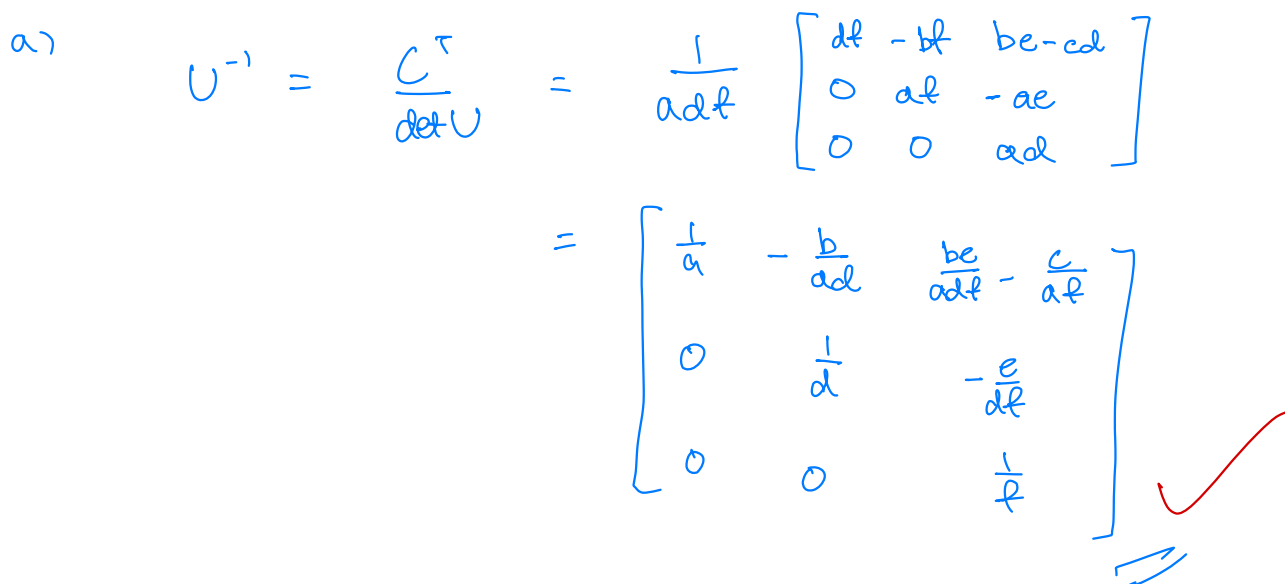 a) U⁻¹ = Cᵀ/det U = 1/adf [df -bf be-cd
0 af -ae
0 0 ad]
= [1/a -b/ad be/adf - c/af
0 1/d -e/df
0 0 1/f]